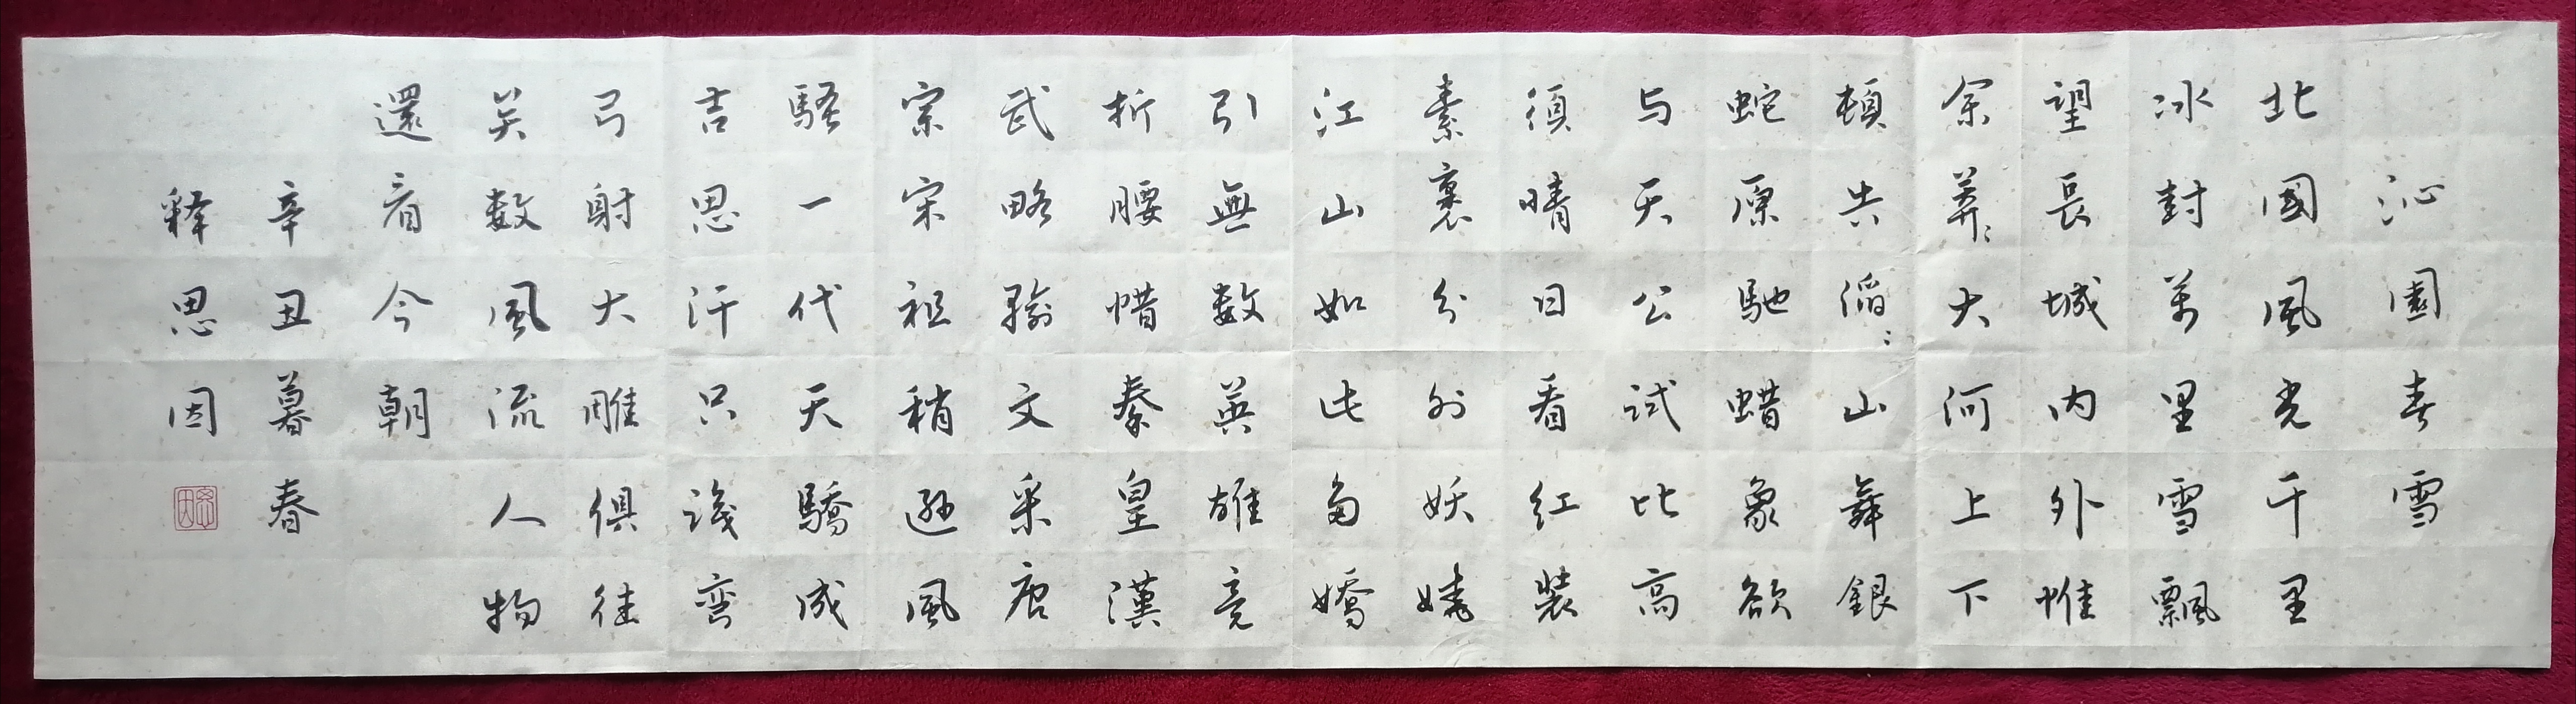 沁園春雪
北國風光千里
冰封萬里雪飄
望長城内外惟
余莽〻大河上下
頓失滔〻山舞銀
蛇原馳蜡象欲
与天公試比高
須晴日看红裝
素裹分外妖嬈
江山如此多嬌
引無數英雄竞
折腰惜秦皇漢
武略輸文采唐
宗宋祖稍遜風
騷一代天驕成
吉思汗只識彎
弓射大雕俱往
矣數風流人物
還看今朝
辛丑暮春
釋思因
思因